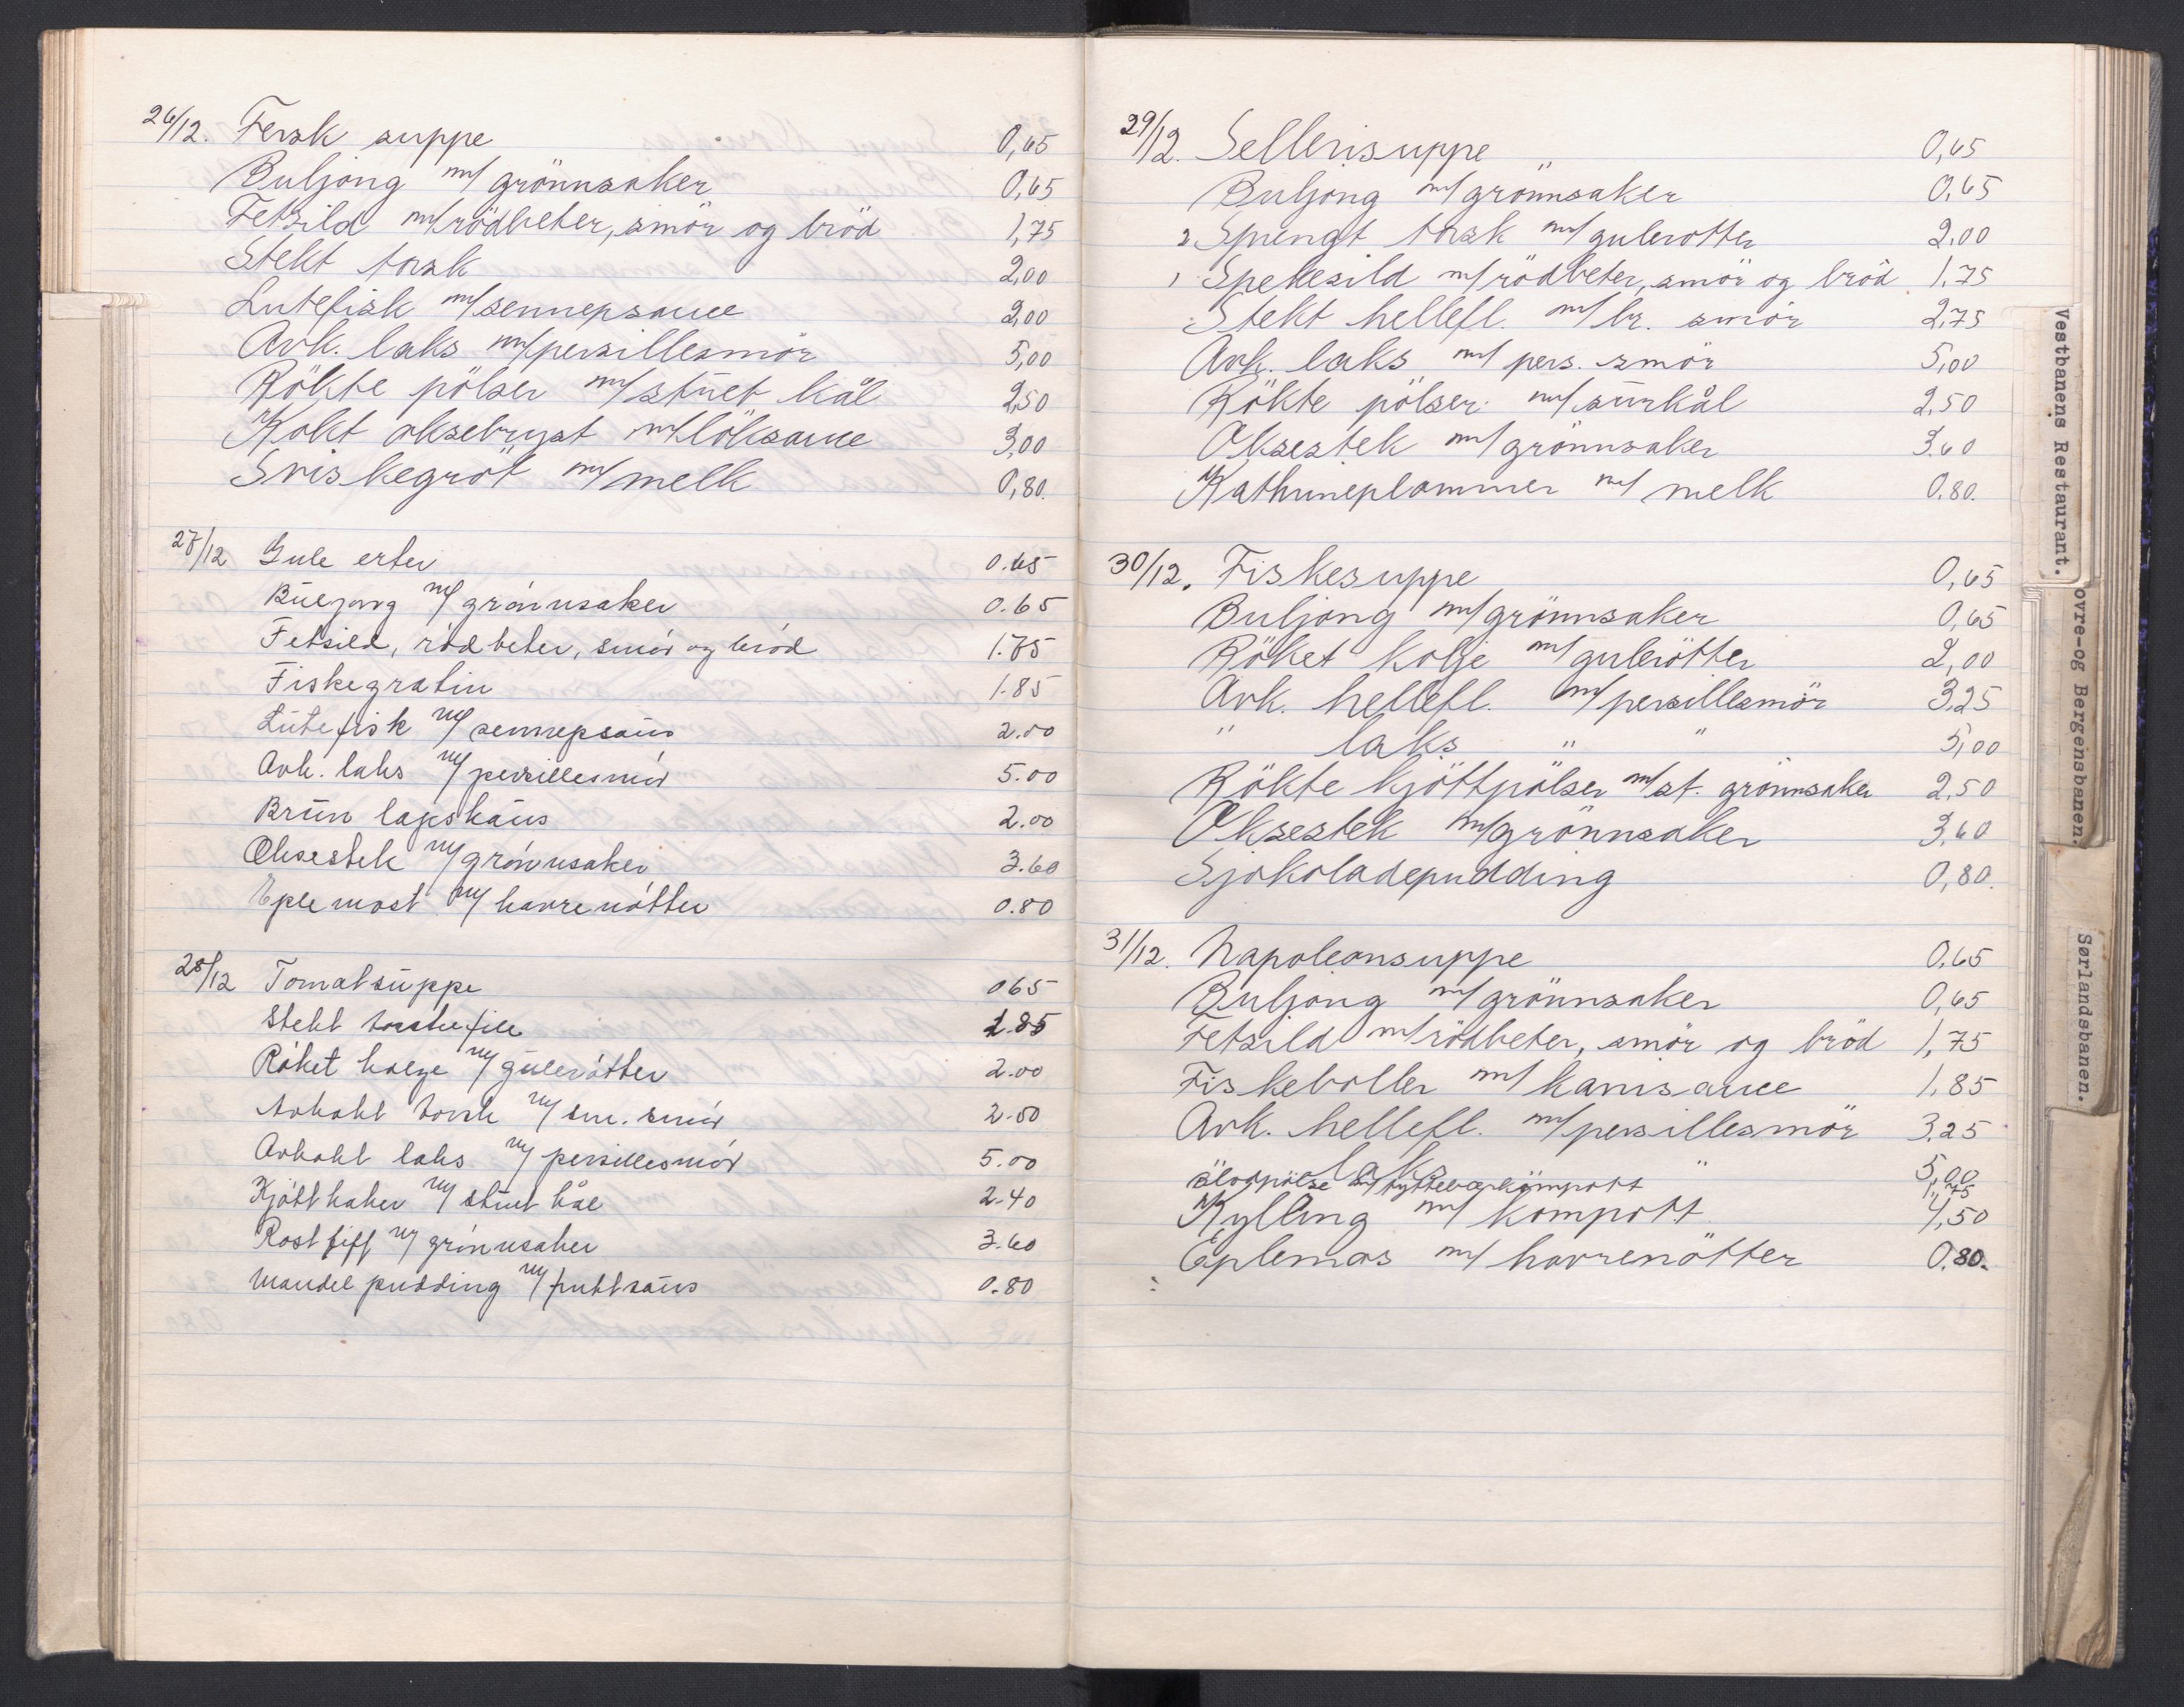 26/12. Fersk suppe 0,65
Buljong m/ grönnsaker 0,65
Fetsild m/rödbeter, smör og bröd 1,75
Stekt torsk 2,00
Lutefisk m/sennepsauce 2,00
Avk. laks m/persillesmör 5,00
Rökte pölser m/stuet kål 2,50
Kokt oksebryst m/löksauce 3,00
Sviskegröt m/melk 0,80.
27/12 Gule erter 0.65
Buljong m/ grönnsaker 0.65
Fetsild, rödbeter, smör og bröd 1.75
Fiskegratin 1.85
Lutefisk m/ sennepsaus 2.00
Avk. laks m/ persillesmör 5.00
Brun lapskaus 2.00
Oksestek m/ grönnsaker 3.60
Eplemost m/ havrenötter 0.80
28/12 Tomatsuppe 065
Stekt torskefile 1.85
Röket kolje m/ gulerötter 2.00
Avkokt torsk m/ sm. smör 2.50
Avkokt laks m/ persillesmör 5.00
Kjöttkaker m/ stuet kål 2.40
Rostbiff m/ grönnsaker 3.60
Mandelpudding m/ fruktsaus 0.80
29/12. Sellerisuppe 0,65
Buljong m/grönnsaker 0,65
2 Sprengt torsk m/gulerotter 2.00
1 Spekesild m/rödbeter, smör og bröd 1.75
Stekt hellefl. m/br. smör 2,75
Avk. laks m/ pers. smör 5,00
Rökte pölser m/surkål 2,50
Oksestek m/grönnsaker 3.60
Kathrineplommer m/ melk 0.80.
30/12. Fiskesuppe 0,65
Buljong m/grönnsaker 0,65
Röket kolje m/gulerötter 2,00
Avk. hellefl. m/persillesmör 3,25
" laks " " 5,00
Rökte kjöttpölser m/st. grönnsaker 2,50
Oksestek m/grönnsaker 3,60
Sjokoladepudding 0,80.
31/12. Napoleonsuppe 0,65
Buljong m/grönnsaker 0,65
Fetsild m/rödbeter, smör og bröd 1,75
Fiskeboller m/ karrisauce 1,85
Avk. hellefl. m/persillesmör 3,25
" laks " 5,00
Blodpölse m/tyttebærkompott 1,75
Kylling m/ kompott 4,50
Eplemos m/ havrenötter 0.80.
Vestbanens Restaurant.
ovre-og Bergensbanen.
Sørlandsbanen.